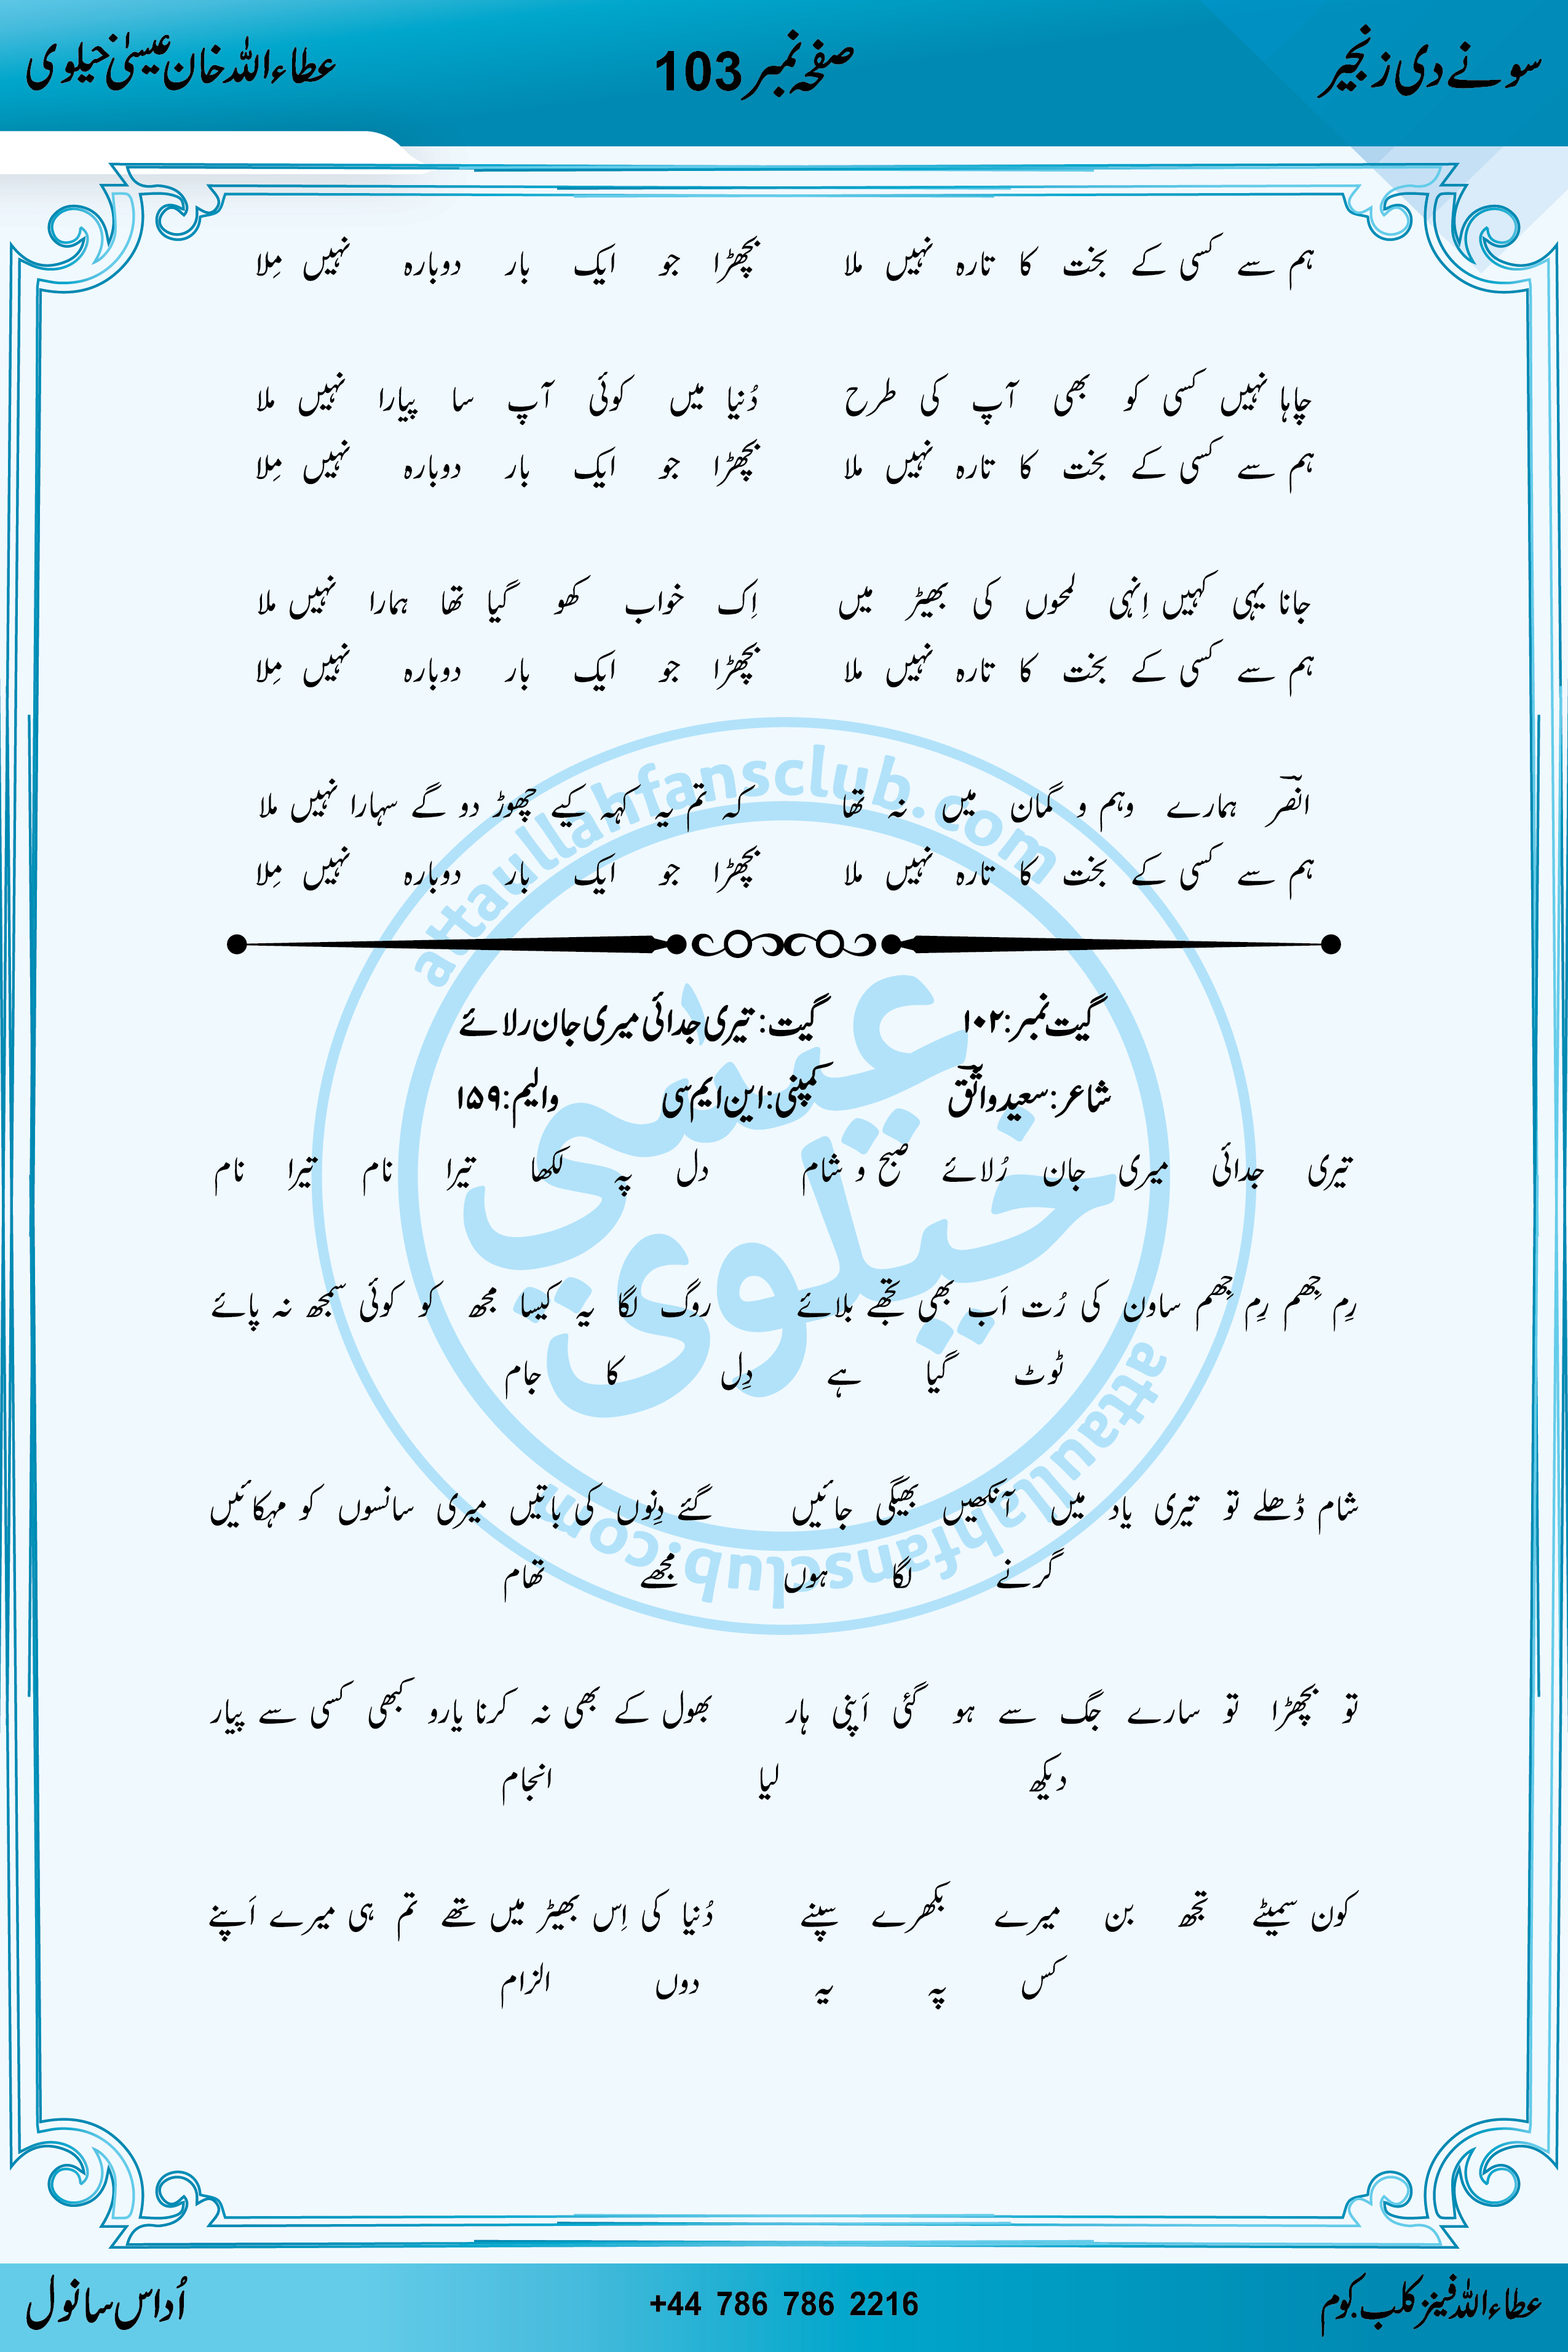 سونے دی زنجیر صفحہ نمبر 103 عطاءاللہ خان عیسیٰ خیلوی
ہم سے کسی کے بخت کا تارہ نہیں ملا بچھڑا جو ایک بار دوبارہ نہیں مِلا
چاہا نہیں کسی کو بھی آپ کی طرح دُنیا میں کوئی آپ سا پیارا نہیں ملا
ہم سے کسی کے بخت کا تارہ نہیں ملا بچھڑا جو ایک بار دوبارہ نہیں مِلا
جانا یہی کہیں اِنہی لمحوں کی بھیڑ میں اِک خواب کھو گیا تھا ہمارا نہیں ملا
ہم سے کسی کے بخت کا تارہ نہیں ملا بچھڑا جو ایک بار دوبارہ نہیں مِلا
انصؔر ہمارے وہم و گمان میں نہ تھا کہ تم یہ کہہ کیے چھوڑ دو گے سہارا نہیں ملا
ہم سے کسی کے بخت کا تارہ نہیں ملا بچھڑا جو ایک بار دوبارہ نہیں مِلا
گیت نمبر:۱۰۲ گیت: تیری جدائی میری جان رلائے
شاعر:سعید واثؔق کمپنی:این ایم سی والیم:۱۵۹
تیری جدائی میری جان رُلائے صبح و شام دل پہ لکھا تیرا نام تیرا نام
رِم جِھم رِم جِھم ساون کی رُت اَب بھی تجھے بلائے روگ لگا یہ کیسا مجھ کو کوئی سمجھ نہ پائے
ٹوٹ گیا ہے دِل کا جام
شام ڈھلے تو تیری یاد میں آنکھیں بھیگی جائیں گئے دِنوں کی باتیں میری سانسوں کو مہکائیں
گرنے لگا ہوں مجھے تھام
تو بچھڑا تو سارے جگ سے ہو گئی اَپنی ہار بھول کے بھی نہ کرنا یارو کبھی کسی سے پیار
دیکھ لیا انجام
کون سمیٹے تجھ بن میرے بکھرے سپنے دُنیا کی اِس بھیڑ میں تھے تم ہی میرے اَپنے
کس پہ یہ دوں الزام
عطاءاللہ فینز کلب.کوم +44 786 786 2216 اُداس سانول
attaullahfansclub.com
عیسیٰ
خیلوی
attaullahfansclub.com